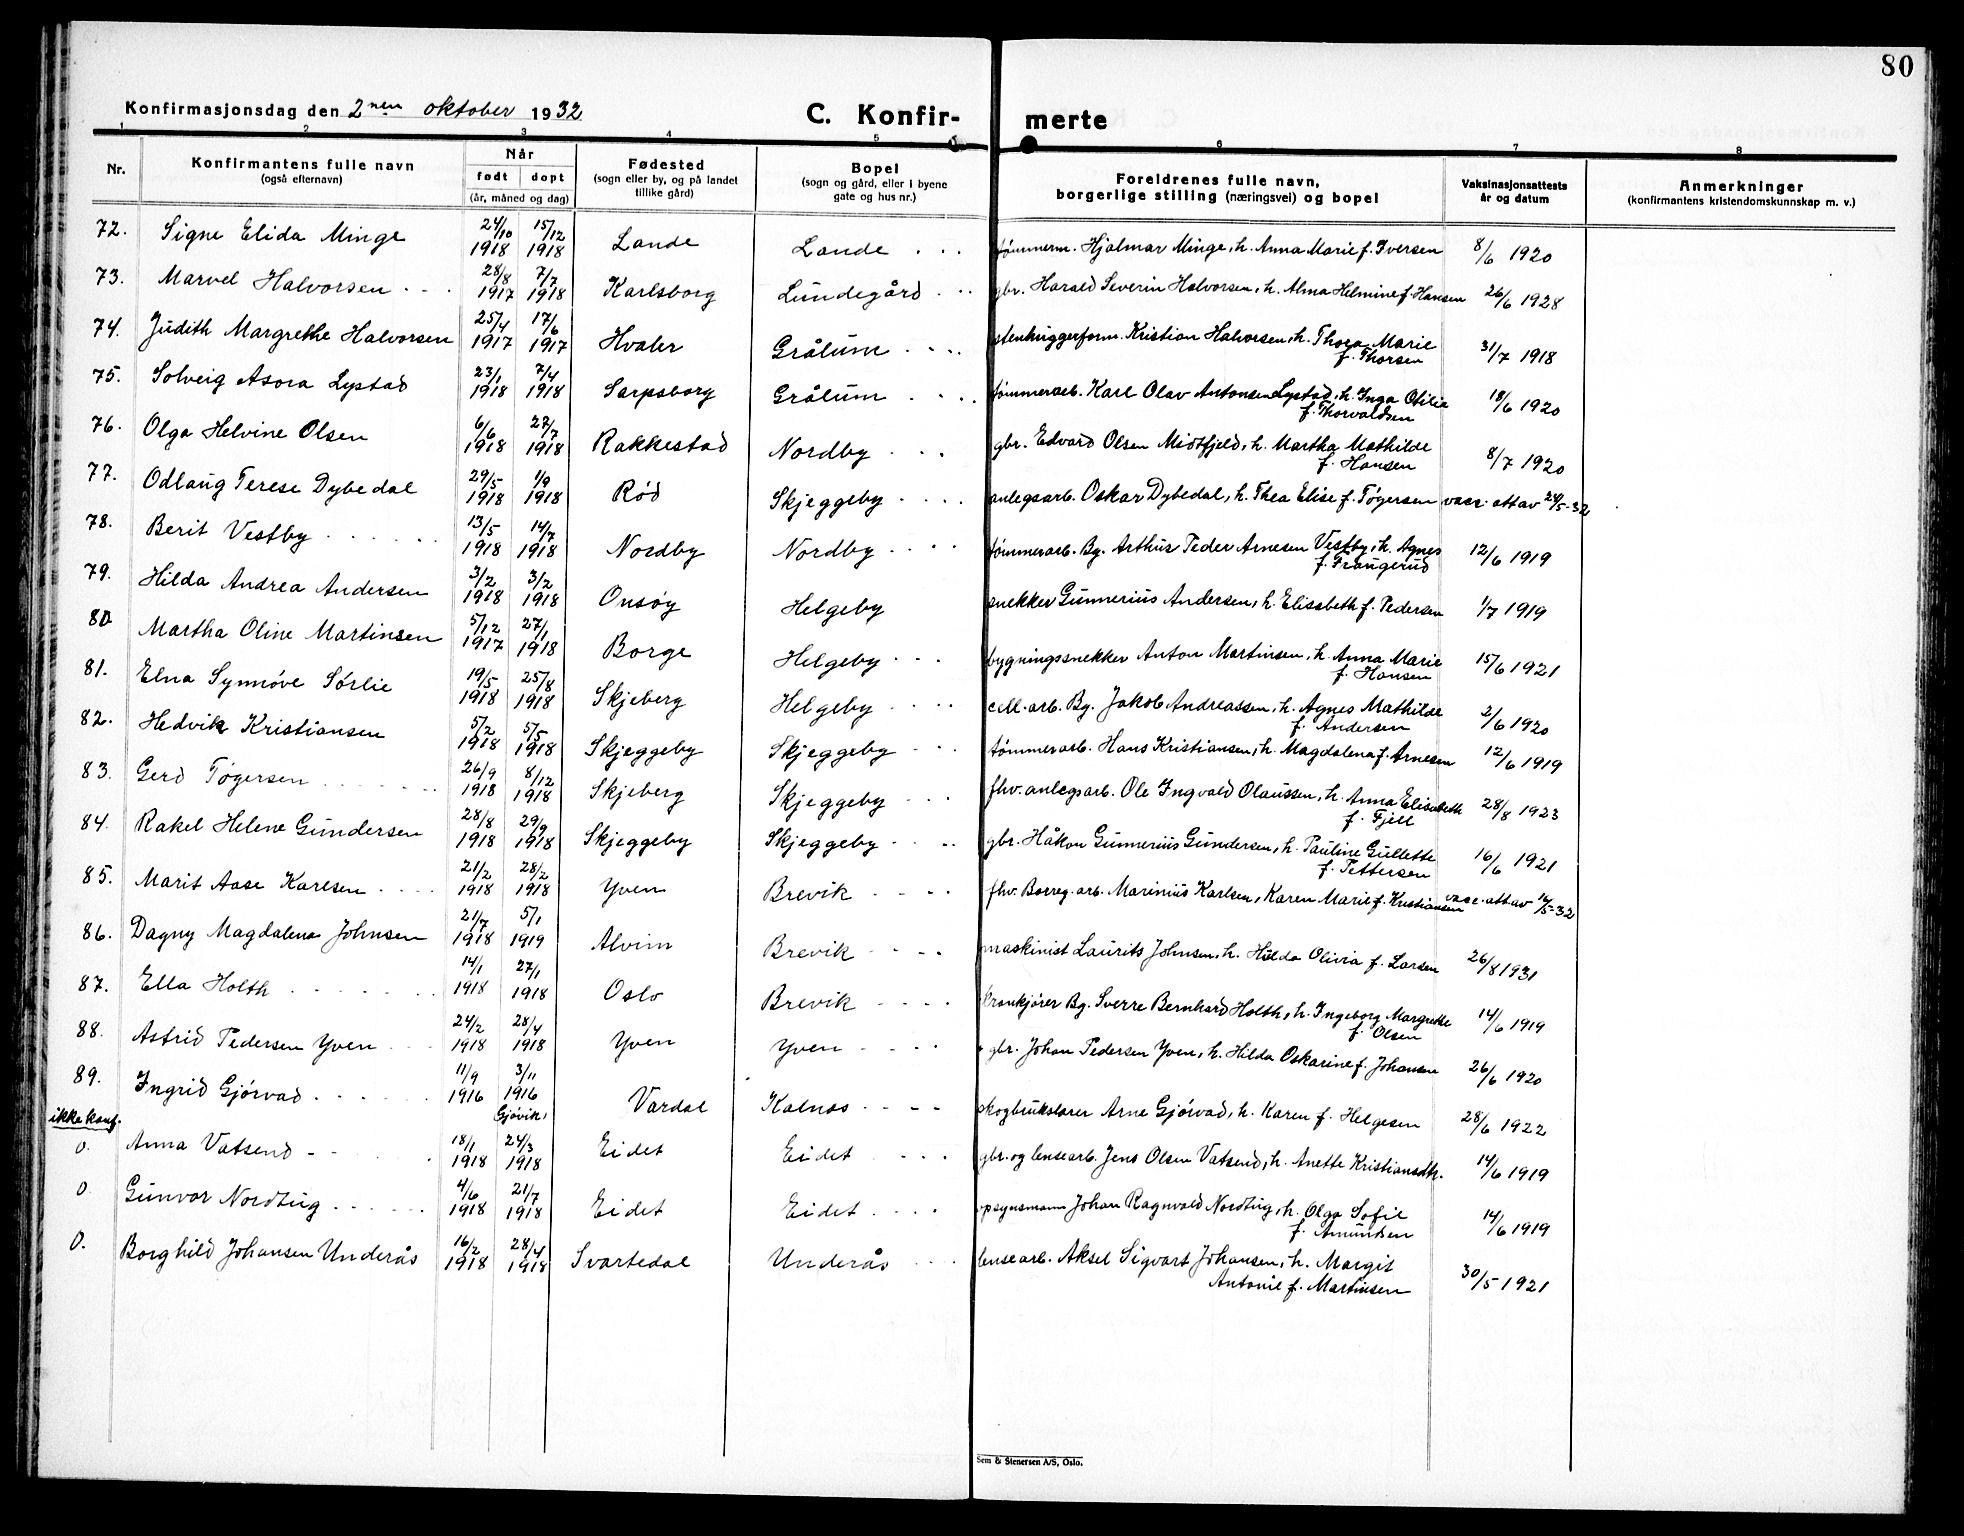 80
Konfirmasjonsdag den 2nen oktober 1932
C. Konfir- merte
1 2 3 4 5 6 7 8
Nr. Konfirmantens fulle navn (også efternavn) Når født døpt (år, måned og dag) Fødested (sogn eller by, og på landet tillike gård) Bopel (sogn og gård, eller i byene gate og hus nr.) Foreldrenes fulle navn, borgerlige stilling (næringsvei) og bopel Vaksinasjonsattests år og datum Anmerkninger (konfirmantens kristendomskunnskap m. v.)
72. Signe Elida Minge 24/10 1918 15/12 1918 Lande Lande tømmerm. Hjalmar Minge, h. Anna Marie f. Iversen 8/6 1920
73. Marvel Halvorsen 28/8 1917 7/7 1918 Karlsborg Lundegård gbr. Harald Severin Halvorsen, h. Alma Helmine f. Hansen 26/6 1928
74. Judith Margrethe Halvorsen 25/4 1917 17/6 1917 Hvaler Grålum stenhuggerform. Kristian Halvorsen, h. Thora Marie
f. Thorsen 31/7 1918
75. Solveig Asora Lystad 23/1 1918 7/4 1918 Sarpsborg Grålum tømmerarb. Karl Olav Antonsen Lystad, h. Inga Otilie
f. Thorvaldsen 18/6 1920
76. Olga Helvine Olsen 6/6 1918 27/7 1918 Rakkestad Nordby gbr. Edvard Olsen Midtfjeld, h. Martha Mathilde
f. Hansen 8/7 1920
77. Odlaug Terese Dybedal 29/5 1918 1/9 1918 Rød Skjeggeby anlegsarb. Oskar Dybedal, h. Thea Elise f. Tøgersen vacc. att av 24/5-32
78. Berit Vestby 13/5 1918 14/7 1918 Nordby Nordby tømmerarb. Bg. Arthur Peder Arnesen Vestby, h. Agnes
f. Fraugerud 12/6 1919
79. Hilda Andrea Andersen 3/2 1918 3/2 1918 Onsøy Helgeby snekker Gunnerius Andersen, h. Elisabeth f. Pedersen 1/7 1919
80 Martha Oline Martinsen 5/12 1917 27/1 1918 Borge Helgeby bygningssnekker Anton Martinsen, h. Anna Marie
f. Hansen 15/6 1921
81. Elna Synnøve Sørlie 19/5 1918 25/8 1918 Skjeberg Helgeby cell. arb. Bg. Jakob Andreassen, h. Agnes Mathilde
f. Andersen 2/6 1920
82. Hedvik Kristiansen 5/2 1918 5/5 1918 Skjeggeby Skjeggeby tømmerarb. Hans Kristiansen, h. Magdalena f. Arnesen 12/6 1919
83. Gerd Tøgersen 26/9 1918 8/12 1918 Skjeberg Skjeggeby fhv. anlegsarb. Ole Ingvald Olaussen, h. Anna Elisabeth
f. Fjell 28/8 1923
84. Rakel Helene Gundersen 28/8 1918 29/9 1918 Skjeggeby Skjeggeby gbr. Håkon Gunnerius Gundersen, h. Pauline Gullette
f. Pettersen 16/6 1921
85. Marit Aase Karlsen 21/2 1918 28/2 1918 Yven Brevik fhv. Borreg. arb. Marinius Karlsen, Karen Marie f. Kristiansen vacc. att av 14/5-32
86. Dagny Magdalena Johnsen 21/7 1918 5/1 1919 Alvim Brevik maskinist Laurits Johnsen, h. Hilda Olivia f. Larsen 26/8 1931
87. Ella Holth 14/1 1918 27/1 1918 Oslo Brevik krankjører Bg. Sverre Bernhard Holth, h. Ingeborg Margrethe
f. Olsen 14/6 1919
88. Astrid Pedersen Yven 24/2 1918 28/4 1918 Yven Yven gbr. Johan Pedersen Yven, h. Hilda Oskarine f. Johansen 26/6 1920
89. Ingrid Gjørvad 11/9 1916 3/11 1916 Gjøvik Vardal Kalnes skogbrukslærer Arne Gjørvad, h. Karen f. Helgesen 28/6 1922
ikke konf.
0. Anna Vatsend 18/1 1918 24/3 1918 Eidet Eidet gbr. og lensearb. Jens Olsen Vatsend, h. Anette Kristiansdtr. 14/6 1919
0 Gunvor Nordtug 4/6 1918 21/7 1918 Eidet Eidet opsynsmann Johan Ragnvald Nordtug, h. Olga Sofie
f. Amundsen 14/6 1919
0. Borghild Johansen Underås 16/2 1918 28/4 1918 Svartedal Underås lensearb. Aksel Sigvart Johansen, h. Margit
Antonie f. Martinsen 30/5 1921
Sem & Stenersen A/S, Oslo.